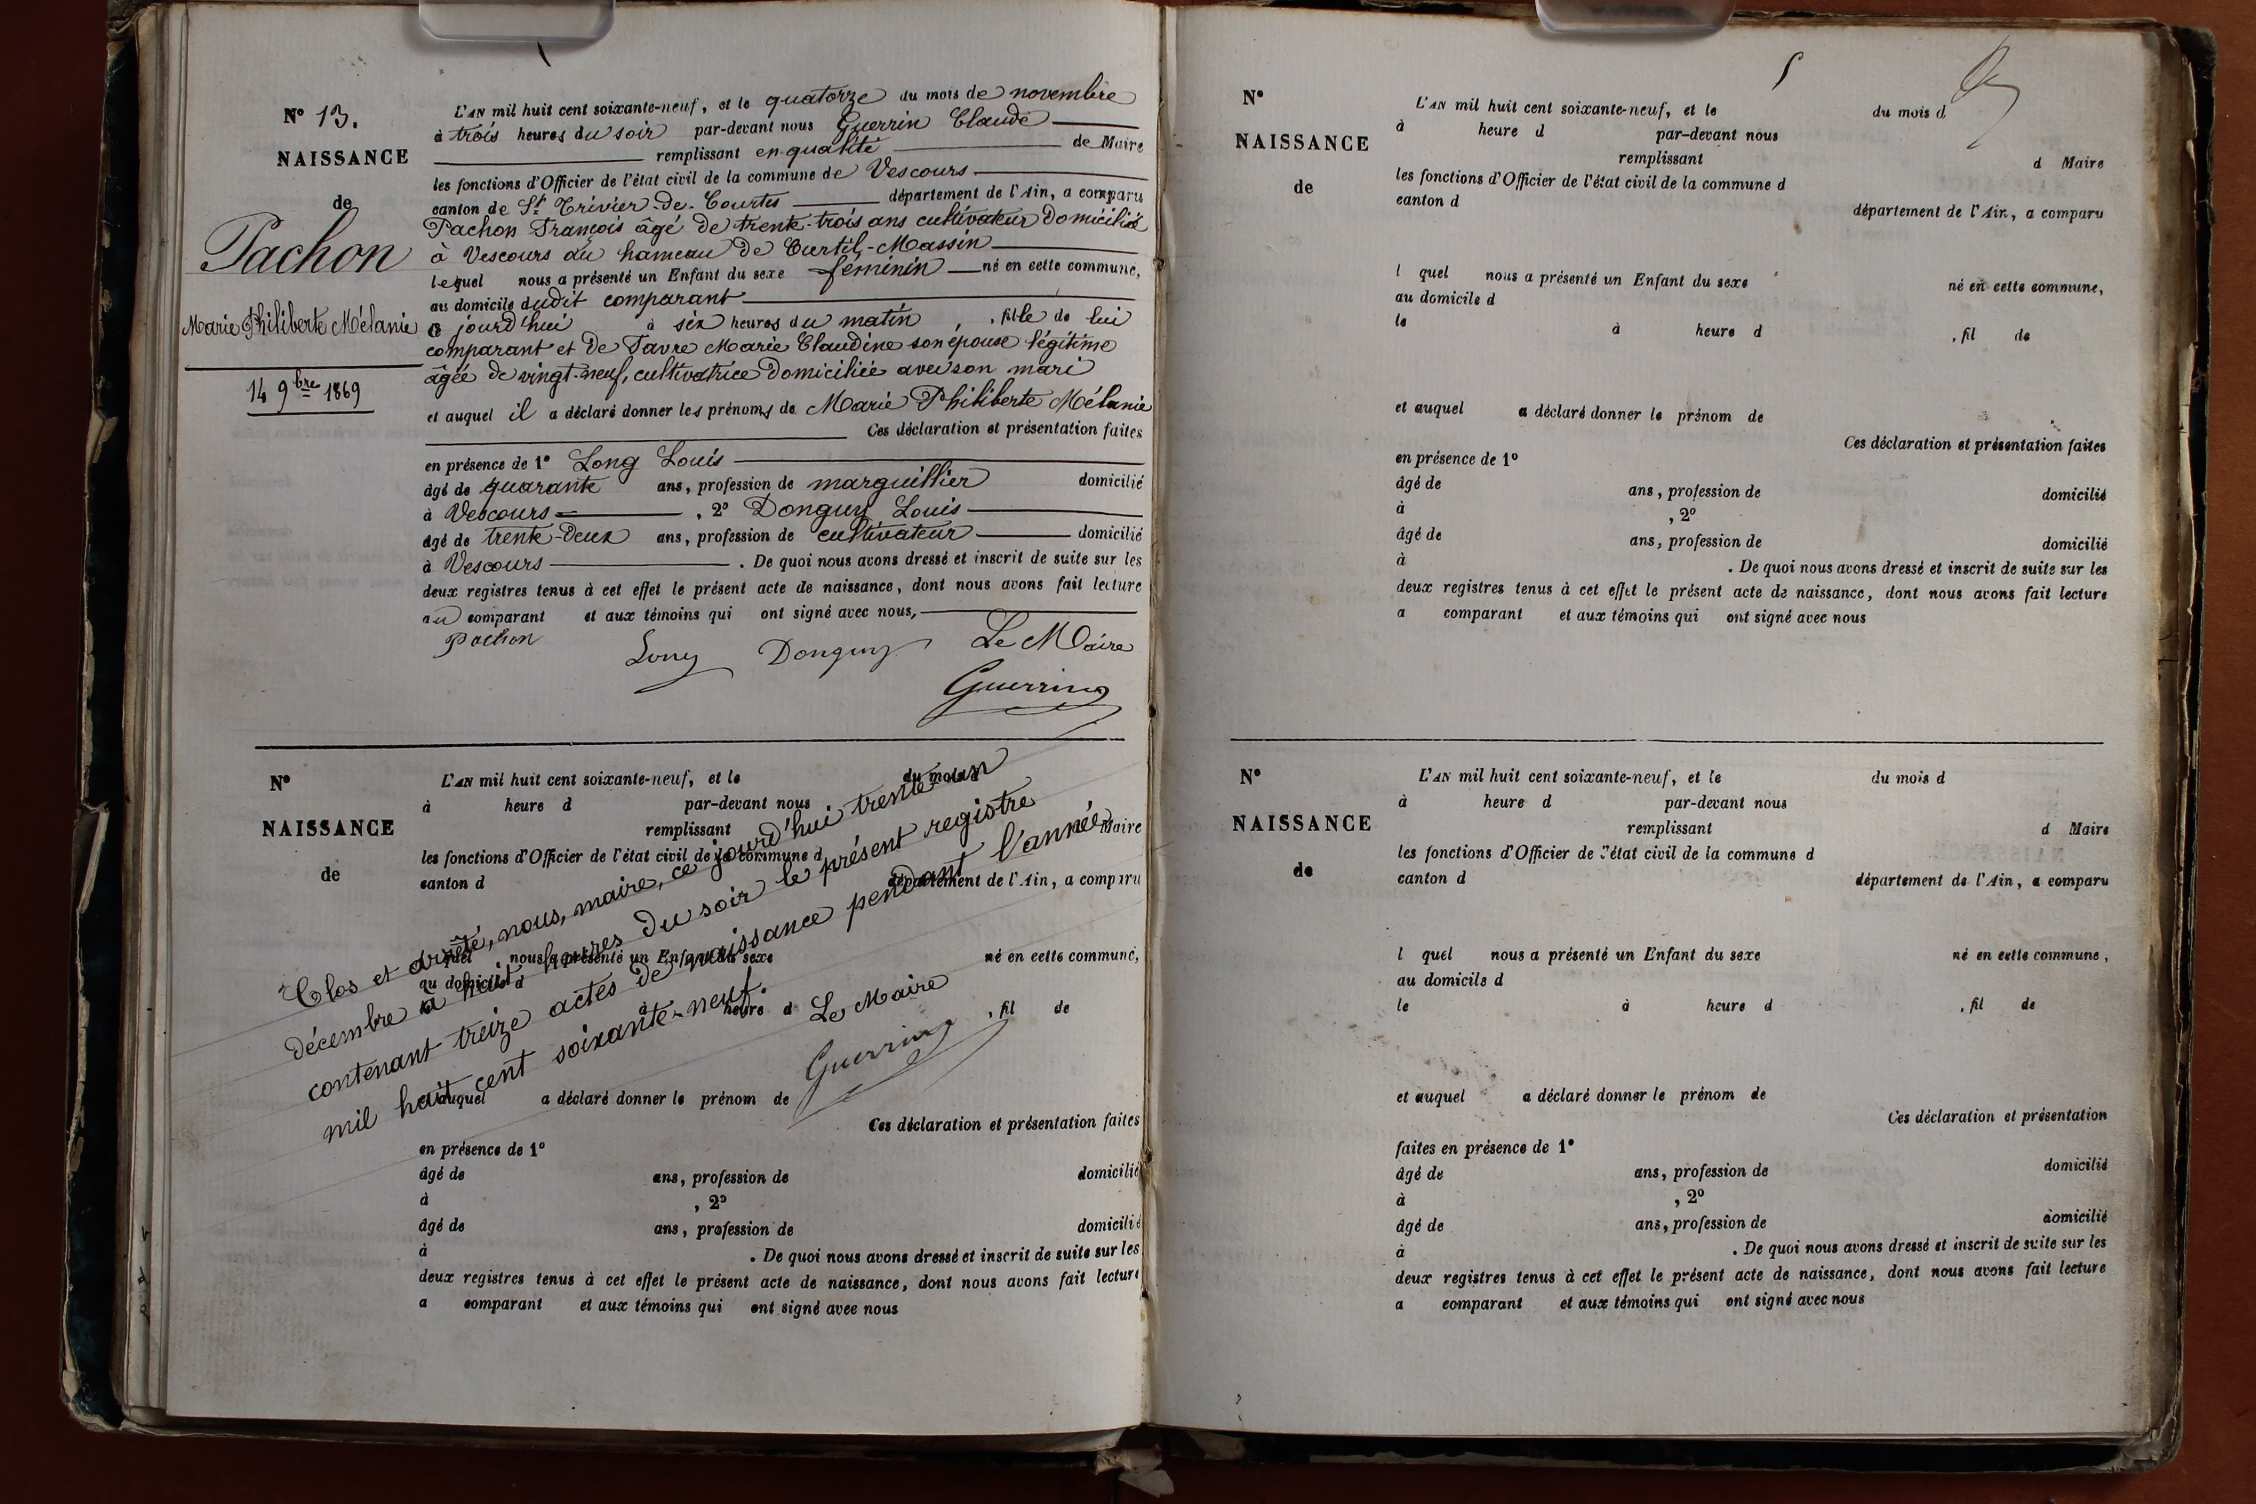 N° 13.
NAISSANCE
de
Pachon
Marie Philiberte Mélanie
14 9bre 1869
L'AN mil huit cent soixante-neuf, et le quatorze du mois de novembre
à trois heures du soir par-devant nous Guerrin Claude
remplissant en qualité de Maire
les fonctions d'Officier de l'état civil de la commune de Vescours
canton de St Trivier-de-Courtes département de l'Ain, a comparu
Pachon François âgé de trente-trois ans cultivateur domicilié
à Vescours au hameau de Curtil-Massin
lequel nous a présenté un Enfant du sexe féminin né en cette commune,
au domicile dudit comparant
ce jourd'hui à six heures du matin, fille de lui
comparant et de Favre Marie Claudine son épouse légitime
âgée de vingt-neuf, cultivatrice domiciliée avec son mari
et auquel il a déclaré donner les prénoms de Marie Philiberte Mélanie
Ces déclaration et présentation faites
en présence de 1° Long Louis
âgé de quarante ans, profession de marguillier domicilié
à Vescours , 2° Donguy Louis
âgé de trente-deux ans, profession de cultivateur domicilié
à Vescours . De quoi nous avons dressé et inscrit de suite sur les
deux registres tenus à cet effet le présent acte de naissance, dont nous avons fait lecture
au comparant et aux témoins qui ont signé avec nous,
Pachon Long Donguy Le Maire
Guerrin
N°
NAISSANCE
de
L'AN mil huit cent soixante-neuf, et le du mois d
à heure d par-devant nous
remplissant Maire
les fonctions d'Officier de l'état civil de la commune d
canton d département de l'Ain, a comparu
quel nous a présenté un Enfant du sexe né en cette commune,
au domicile d
à heure d , fil de
et auquel a déclaré donner le prénom de
Ces déclaration et présentation faites
en présence de 1°
âgé de ans, profession de domicilié
à , 2°
âgé de ans, profession de domicilié
à . De quoi nous avons dressé et inscrit de suite sur les
deux registres tenus à cet effet le présent acte de naissance, dont nous avons fait lecture
a comparant et aux témoins qui ont signé avec nous
Clos et arrêté, nous, maire, ce jourd'hui trente un
décembre à huit heures du soir le présent registre
contenant treize actes de naissance pendant l'année
mil huit cent soixante-neuf.
Le Maire
Guerrin
N°
NAISSANCE
de
L'AN mil huit cent soixante-neuf, et le du mois d
à heure d par-devant nous
remplissant d Maire
les fonctions d'Officier de l'état civil de la commune d
canton d département de l'Ain, a comparu
l quel nous a présenté un Enfant du sexe né en cette commune,
au domicile d
le à heure d , fil de
et auquel a déclaré donner le prénom de
Ces déclaration et présentation faites
en présence de 1°
âgé de ans, profession de domicilié
à , 2°
âgé de ans, profession de domicilié
à . De quoi nous avons dressé et inscrit de suite sur les
deux registres tenus à cet effet le présent acte de naissance, dont nous avons fait lecture
a comparant et aux témoins qui ont signé avec nous
N°
NAISSANCE
de
L'AN mil huit cent soixante-neuf, et le du mois d
à heure d par-devant nous
remplissant d Maire
les fonctions d'Officier de l'état civil de la commune d
canton d département de l'Ain, a comparu
l quel nous a présenté un Enfant du sexe né en cette commune,
au domicile d
le à heure d , fil de
et auquel a déclaré donner le prénom de
Ces déclaration et présentation
faites en présence de 1°
âgé de ans, profession de domicilié
à , 2°
âgé de ans, profession de domicilié
à . De quoi nous avons dressé et inscrit de suite sur les
deux registres tenus à cet effet le présent acte de naissance, dont nous avons fait lecture
a comparant et aux témoins qui ont signé avec nous